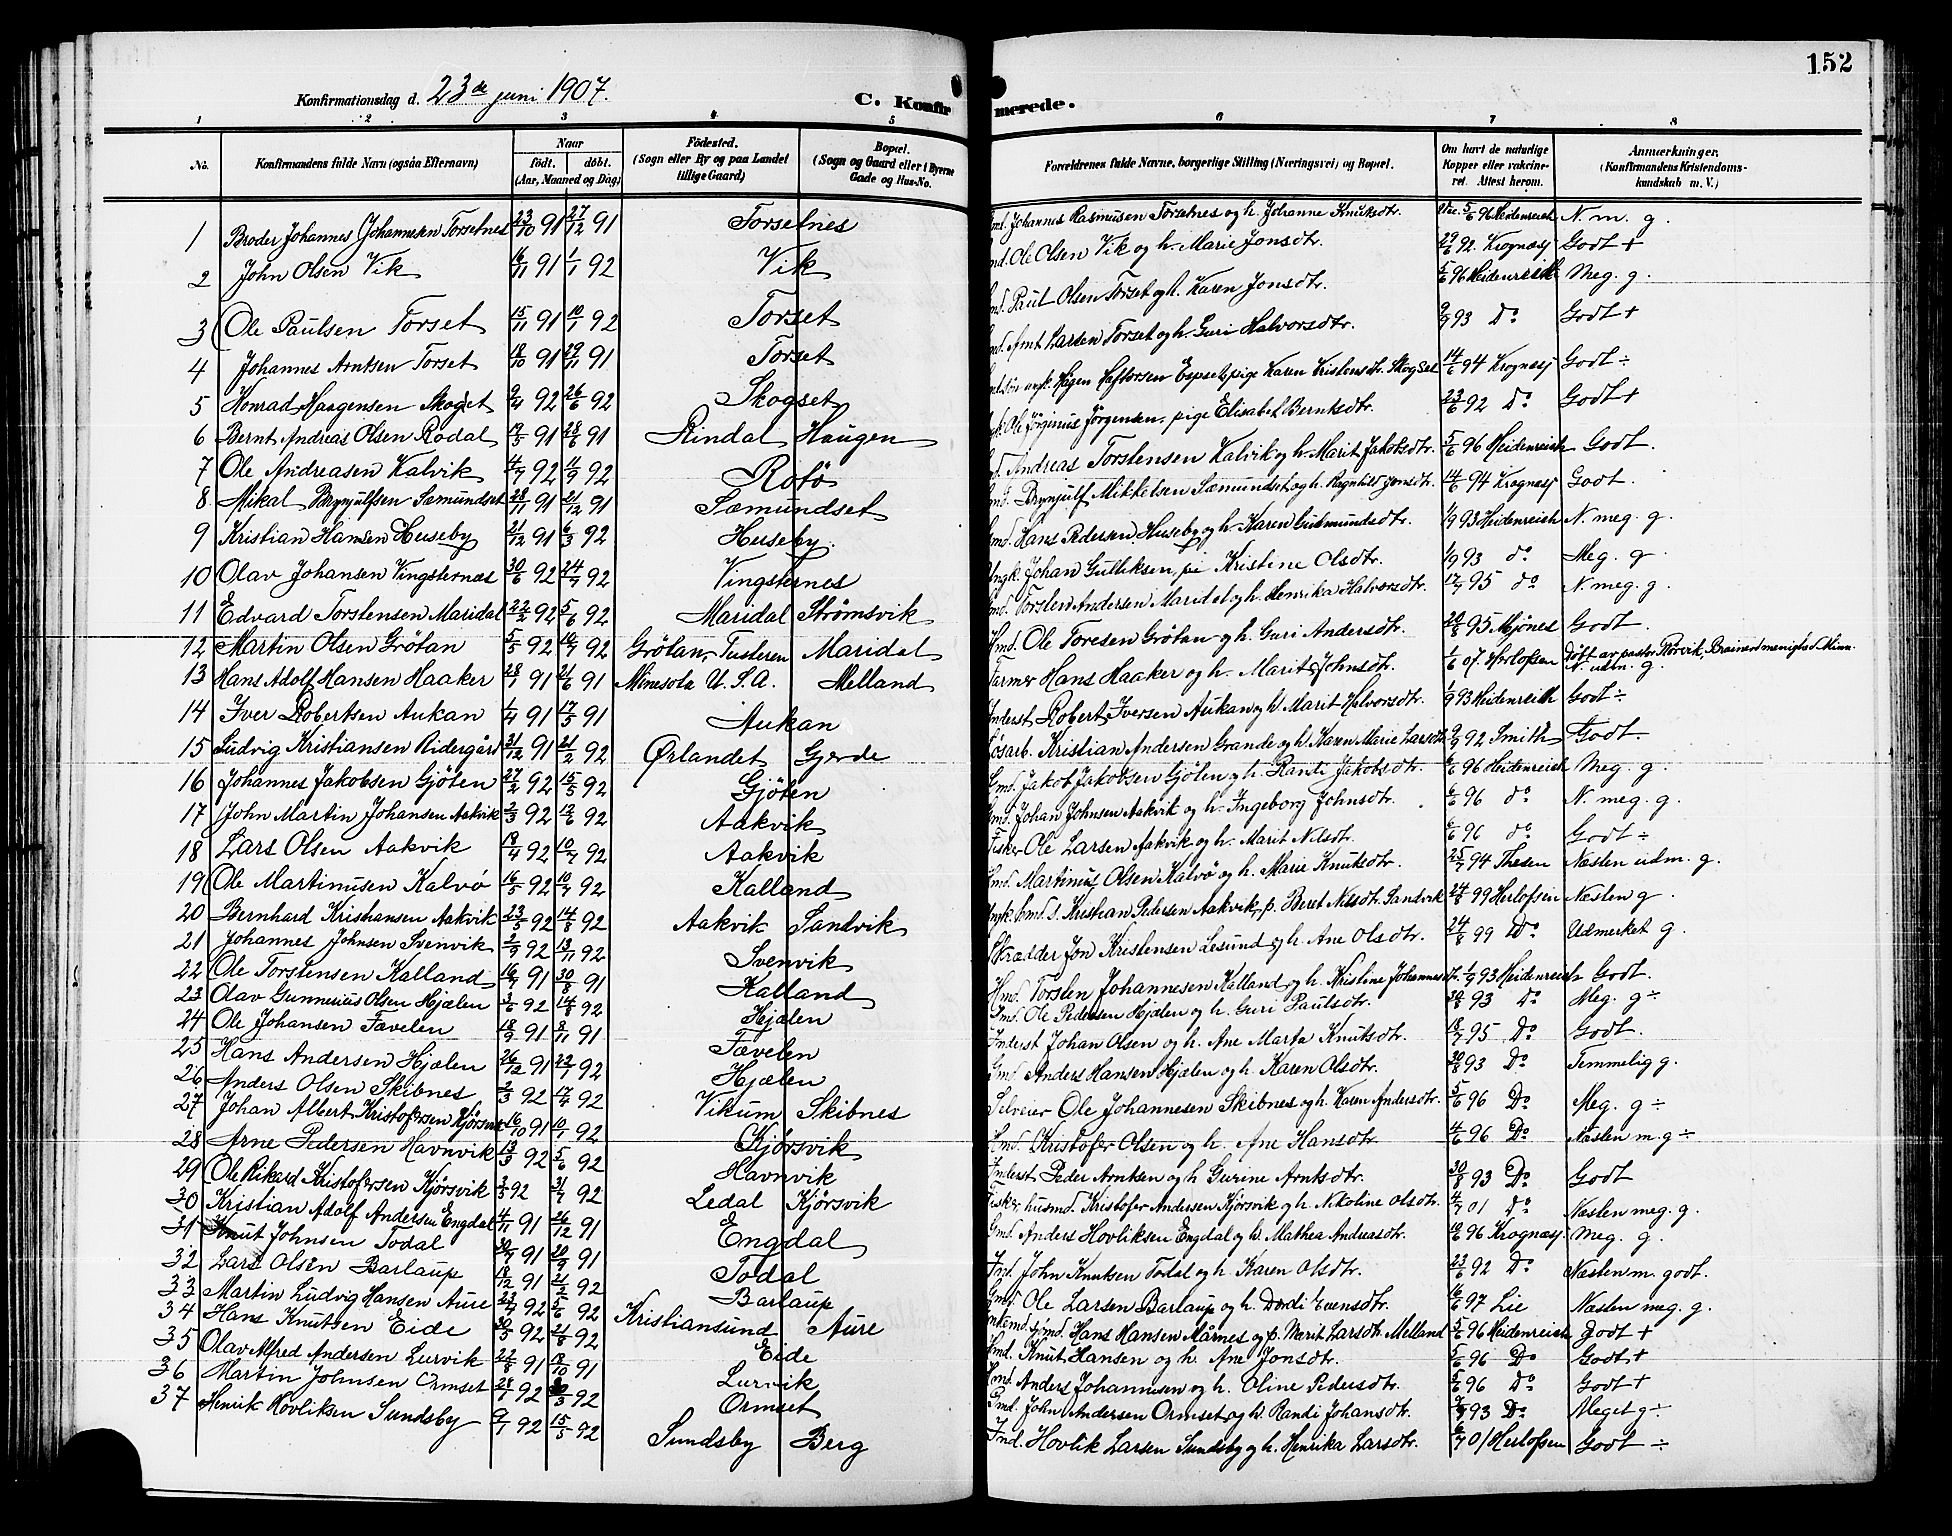 152
Konfirmationsdag d. 23de juni 1907.
C. Konfirmerede.
1 2 3 4 5 6 7 8
No. Konfirmandens fulde Navn (ogsaa Efternavn) Naar födt. döbt. (Aar, Maaned og Dag) Födested. (Sogn eller By og paa Landet tillige Gaard) Bopæl. (Sogn og Gaard eller i Byerne Gade og Hus-No. Forældrenes fulde Navne, borgerlige Stilling (Næringsvei) og Bopæl. Om havt de naturlige Kopper eller vakcineret. Attest herom. Anmærkninger. (Konfirmandens Kristendomskundskab m. V.)
1 Broder Johannes Johannesen Torsetnes 23/10 91 27/12 91 Torsetnes Johannes Rasmusen Torsetnes og h. Johanne Knutsdtr. Vac. 5/6 96 Heidenreich N. m. g.
2 John Olsen Vik 16/11 91 1/1 92 Vik Ole Olsen Vik og h. Marie Jonsdtr. 29/6 92 Krognæss Godt +
3 Ole Paulsen Torset 15/11 91 10/1 92 Torset Paul Olsen Torset og h. Karen Jonsdtr. 5/6 96 Heidenreich Meg. g.
4 Johannes Arntsen Torset 18/10 91 29/11 91 Torset Arnt Larsen Torset og h. Guri Halvorsdtr. 9/9 93 Do Godt +
5 Konrad Haagensen Skogset 9/4 92 26/6 92 Skogset Hågen Haftorsen Espset, pige Karen Kristensdtr. Skogset 14/6 94 Krognæss Godt ÷
6 Bernt Andreas Olsen Rodal 19/5 91 28/6 91 Rindal Haugen Ole Jörginius Jörgensen, pige Elisabet Berntsdtr. 23/6 92 Do Godt +
7 Ole Andreasen Kalvik 4/7 92 11/9 92 Rotö Andreas Torstensen Kalvik og h. Marit Jakobsdtr. 5/6 96 Heidenreich Godt
8 Mikal Brynjulfsen Sæmundset 28/11 91 21/12 91 Sæmundset Brynjulf Mikkelsen Sæmundset og h. Ragnhild Jonsdtr. 14/6 94 Krognæss Godt.
9 Kristian Hansen Huseby 21/12 91 6/3 92 Huseby Hans Pedersen Huseby og h. Karen Gudmundsdtr. 1/9 93 Heidenreich N. meg. g.
10 Olav Johansen Vingsternæs 30/6 92 24/7 92 Vingsternes Ungk. Johan Gulliksen, pi Kristine Olsdtr. 1/9 93 do Meg. g
11 Edvard Torstensen Maridal 22/2 92 5/6 92 Maridal Strömsvik Torsten Andersen Maridal og h. Henrika Halvorsdtr. 17/7 95 do N. meg. g.
12 Martin Olsen Grötan 5/5 92 14/7 92 Grötan, Tusteren Maridal Hmd. Ole Toresen Grötan og h. Guri Andersdtr. 20/8 95 Mjönes Godt.
13 Hans Adolf Hansen Haaker 28/1 91 21/6 91 Minesota U. S. A. Melland Farmer Hans Haaker og h. Marit Johnsdtr. 1/6 07. Herlofsen Döpt av pastor Rörvik, Brainerd menighed Minn. N. udm. g.
14 Iver Robertsen Aukan 1/4 91 17/5 91 Aukan Inderst Robert Iversen Aukan og h. Marit Halvorsdtr. 1/9 93 Heidenreich Godt ÷
15 Ludvig Kristiansen Ridergård 31/12 91 21/2 92 Ørlandet Gjerde Lösarb. Kristian Andersen Grande og h. Karen Marie Larsdtr. 9/9 92 Smith Godt
16 Johannes Jakobsen Gjöten 27/2 92 15/5 92 Gjöten Gmd. Jakob Jakobsen Gjöten og h. Randi Jakobsdtr. 6/6 96 Heidenreich Meg. g.
17 John Martin Johansen Aakvik 2/3 92 12/6 92 Aakvik Hmd. Johan Johnsen Aakvik og h. Ingeborg Johnsdtr. 6/6 96 do N. meg. g.
18 Lars Olsen Aakvik 19/4 92 10/7 92 Aakvik Fisker Ole Larsen Aakvik og h. Marit Nilsdtr. 6/6 96 do Godt ÷
19 Ole Martinusen Kalvö 16/5 92 10/7 92 Kalland Hmd. Martinus Olsen Kalvö og h. Marie Knutsdtr. 25/7 94 Thesen Næsten udm. g.
20 Bernhard Kristiansen Aakvik 23/5 92 14/8 92 Aakvik Sandvik Ungk. Gmd. s. Kristian Pedersen Aakvik, p. Beret Nilsdtr. Sandvik 24/8 99 Herlofsen Næsten g.
21 Johannes Johnsen Svenvik 2/9 92 13/11 92 Svenvik Skrædder Jon Kristensen Lesund og h. Ane Olsdtr. 24/8 99 Do Udmerket g.
22 Ole Torstensen Kalland 16/7 91 30/8 91 Kalland Hmd. Torsten Johannesen Kalland og h. Kristine Johannesdtr. 1/9 93 Heidenreich Godt.
23 Olav Gunnerius Olsen Hjælen 3/6 92 14/8 92 Hjælen Gmd. Ole Pedersen Hjælen og h. Guri Paulsdtr. 20/8 93 Do Meg. g ÷
24 Ole Johansen Fævelen 18/9 91 8/11 91 Fævelen Inderst Johan Olsen og h. Ane Marta Knutsdtr. 18/7 95 Do Godt.
25 Hans Andersen Hjælen 26/12 91 22/7 92 Hjælen Gmd. Anders Hansen Hjælen og h. Karen Olsdtr. 30/8 93 Do Temmelig g.
26 Anders Olsen Skibnes 2/3 92 17/4 92 Vikum Skibnes Selveier Ole Johannesen Skibnes og h. Karen Andersdtr. 5/6 96 Do Meg. g ÷
27 Johan Albert Kristofersen Kjörsvik 16/10 91 10/1 92 Kjörsvik Hmd. Kristofer Olsen og h. Ane Hansdtr. 4/6 96 Do Næsten m. g ÷
28 Arne Pedersen Havnvik 13/3 92 5/6 92 Havnvik Inderst Peder Arntsen og h. Gurine Arntsdtr. 30/8 93 Do Godt
29 Ole Rikard Kristofersen Kjörsvik 2/5 92 31/7 92 Ledal Kjörsvik Fisker, husmd. Kristofer Andersen Kjörsvik og h. Nikoline Olsdtr. 4/7 01 do Næsten meg. g.
30 Kristian Adolf Andersen Engdal 4/11 91 26/12 91 Engdal Gmd. Anders Hovliksen Engdal og h. Mathea Andreasdtr. 10/6 96 Krognæss Meg. g.
31 Knut Johnsen Todal 30/7 91 20/9 91 Todal Ind. John Knutsen Todal og h. Karen Olsdtr. 23/6 92 Do Næsten m. godt.
32 Lars Olsen Barlaup 18/12 91 21/2 92 Barlaup Gmd. Ole Larsen Barlaup og h. Dordi Evensdtr. 16/6 97 Lie Næsten meg. g.
33 Martin Ludvig Hansen Aure 23/4 92 5/6 92 Kristiansund Aure Hans Hansen Mårnes og p. Marit Larsdtr. Melland 5/6 96 Heidenreich Godt +
34 Hans Knutsen Eide 30/5 92 21/8 92 Eide Hmd. Knut Hansen og h. Ane Jonsdtr. 5/6 96 Do Godt +
35 Olav Alfred Andersen Lurvik 22/8 91 18/10 91 Lurvik Hmd. Anders Johannesen og h. Oline Pedersdtr. 5/6 96 Do Godt +
36 Martin Johnsen Ormset 28/1 92 20/3 92 Ormset Gmd. John Andersen Ormset og h. Randi Johansdtr. 93 Do Meget g ÷
37 Henrik Hovliksen Sundsby 9/1 92 15/5 92 Sundsby Berg Ind. Hovlik Larsen Sundsby og h. Henrika Larsdtr. 6/7 01 Herlofsen Godt ÷